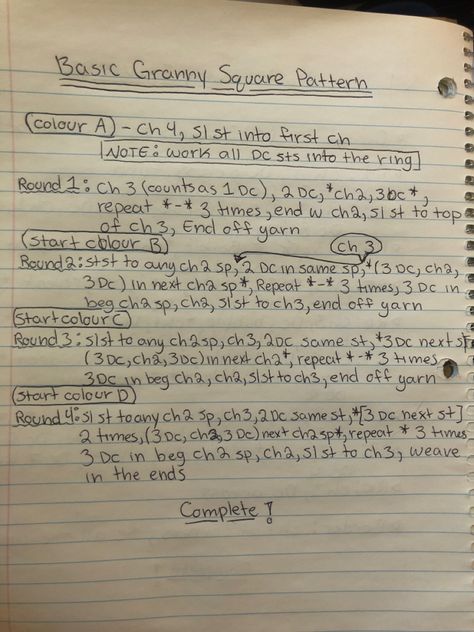 Basic Granny Square Pattern
(colour A) - ch 4, sl st into first ch
NOTE: work all DC sts into the ring
Round 1: ch 3 (counts as 1 DC), 2 DC, *ch2, 3DC*,
repeat *-* 3 times, end w ch2, sl st to top
of ch 3, End off yarn
(Start colour B) ch 3
Round 2: sl st to any ch 2 sp, 2 DC in same sp, *(3 DC, ch2,
3 DC) in next ch 2 sp*, Repeat *-* 3 times, 3 DC in
beg ch 2 sp, ch2, sl st to ch3, end off yarn
(Start colour C)
Round 3: sl st to any ch 2 sp, ch3, 2 DC same st, *3 DC next st
(3 DC, ch2, 3 DC) in next ch2*, repeat *-* 3 times
3 DC in beg ch2, ch2, sl st to ch3, end off yarn
(Start colour D)
Round 4: sl st to any ch 2 sp, ch3, 2 DC same st, *[3 DC next st]
2 times, (3 DC, ch2, 3 DC) next ch 2 sp*, repeat * 3 times
3 DC in beg ch 2 sp, ch2, sl st to ch3, weave
in the ends
Complete!